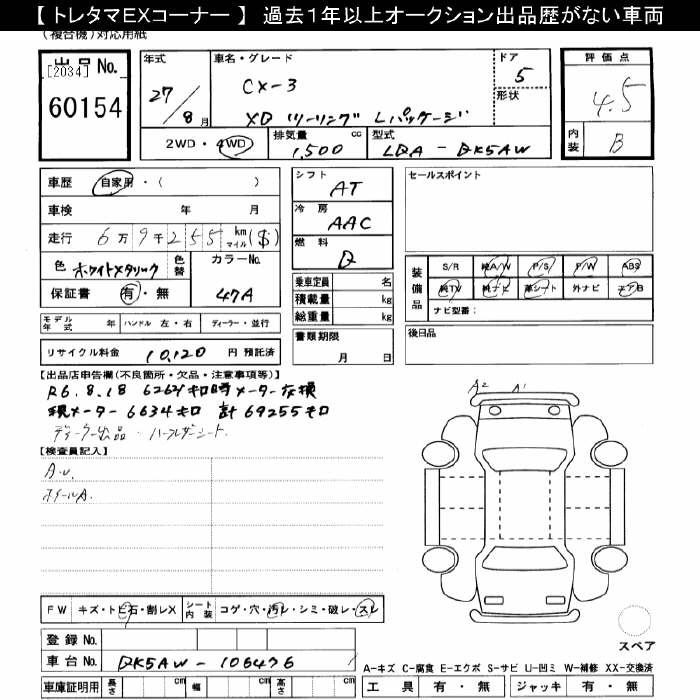 【 トレタマEXコーナー 】 過去1年以上オークション出品歴がない車両
(複合機)対応用紙
出品 No.
[2034]
60154
年式
27/8月
車名・グレード
CX-3
XD ツーリング Lパッケージ
ドア
5
形状
評価点
4.5
内装
B
2WD・4WD
排気量
1,500 cc
型式
LDA - DK5AW
車歴 自家用・( )
車検 年 月
走行 6万9千255 km マイル ($)
色 ホワイトメタリック 色替
カラーNo.
47A
保証書 有・無
シフト
AT
冷房
AAC
燃料
D
乗車定員 名
積載量 kg
総重量 kg
セールスポイント
装備品
S/R 純A/W P/S P/W ABS
純TV 純ナビ 革シート 外ナビ エアB
ナビ型番:
モデル年式 年 ハンドル 左・右 ディーラー・並行
リサイクル料金 10,120 円 預託済
書類期限
月 日
後日品
【出品店申告欄(不良箇所・欠品・注意事項等)】
R6.8.18 62621キロ時メーター交換
現メーター 6634キロ 計 69255キロ
ディーラー出品・ハーフレザーシート.
【検査員記入】
A.U.
ホイールA.
A2 A1
FW キズ・トビ石・割レX シート内装 コゲ・穴・汚レ・シミ・破レ・スレ
スペア
登録 No.
車台 No. DK5AW - 106476
A-キズ C-腐食 E-エクボ S-サビ U-凹ミ W-補修 XX-交換済
車庫証明用 長さ cm 幅 cm 高さ cm
工具 有・無 ジャッキ 有・無